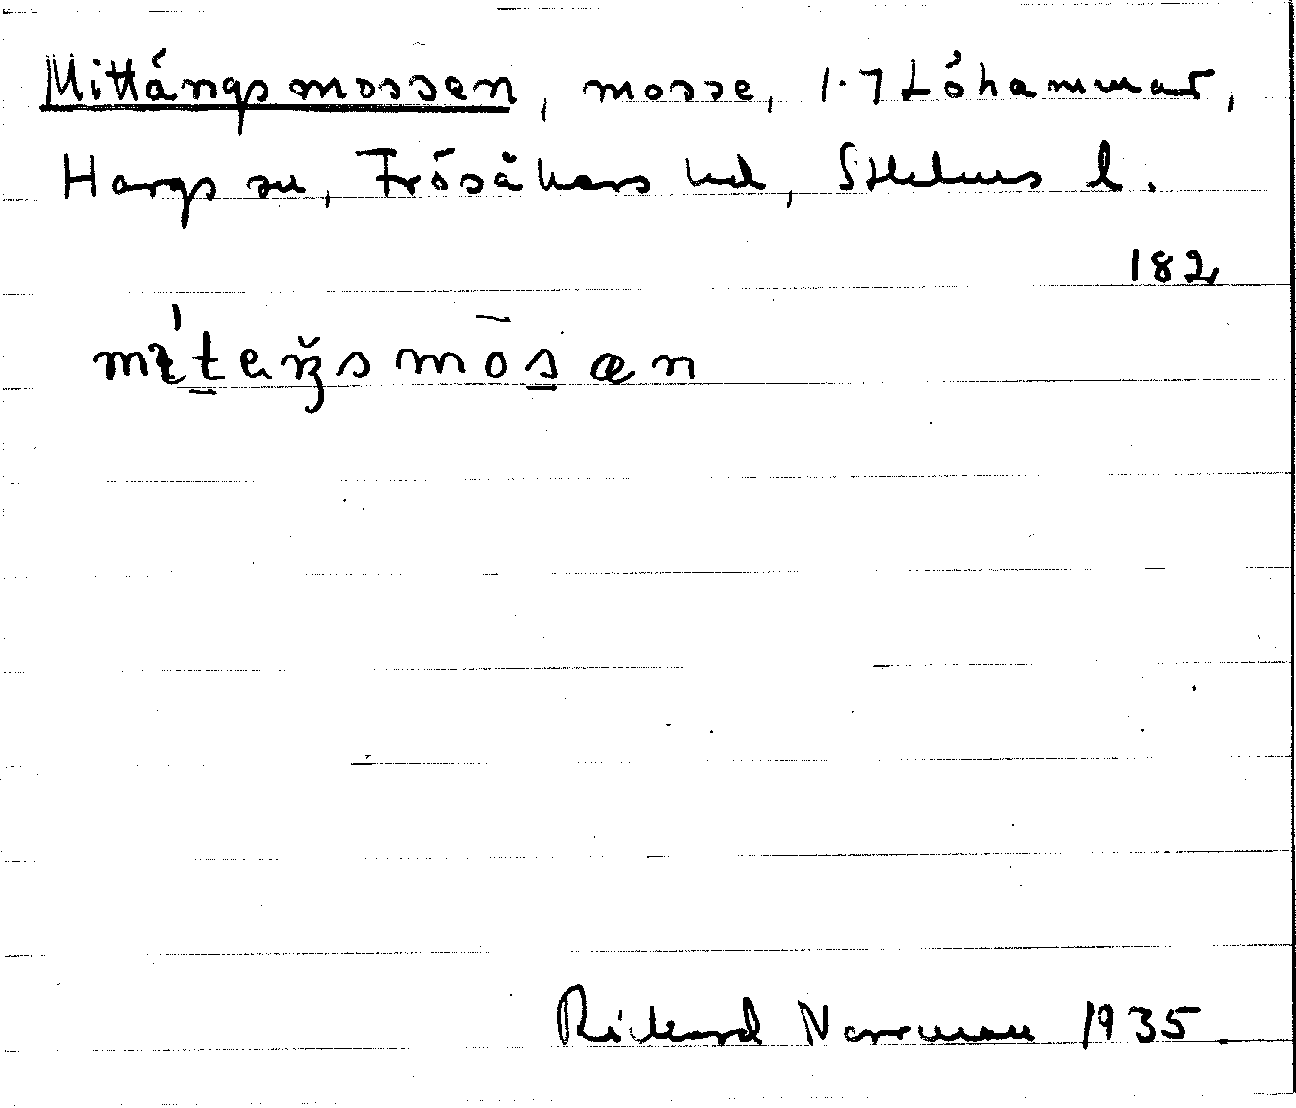 Mittängsmossen, mosse, 1·7 Löhammar,
Hargs sn, Frösåkers hd, Sthlms l.
182
Rickard Norrman 1935